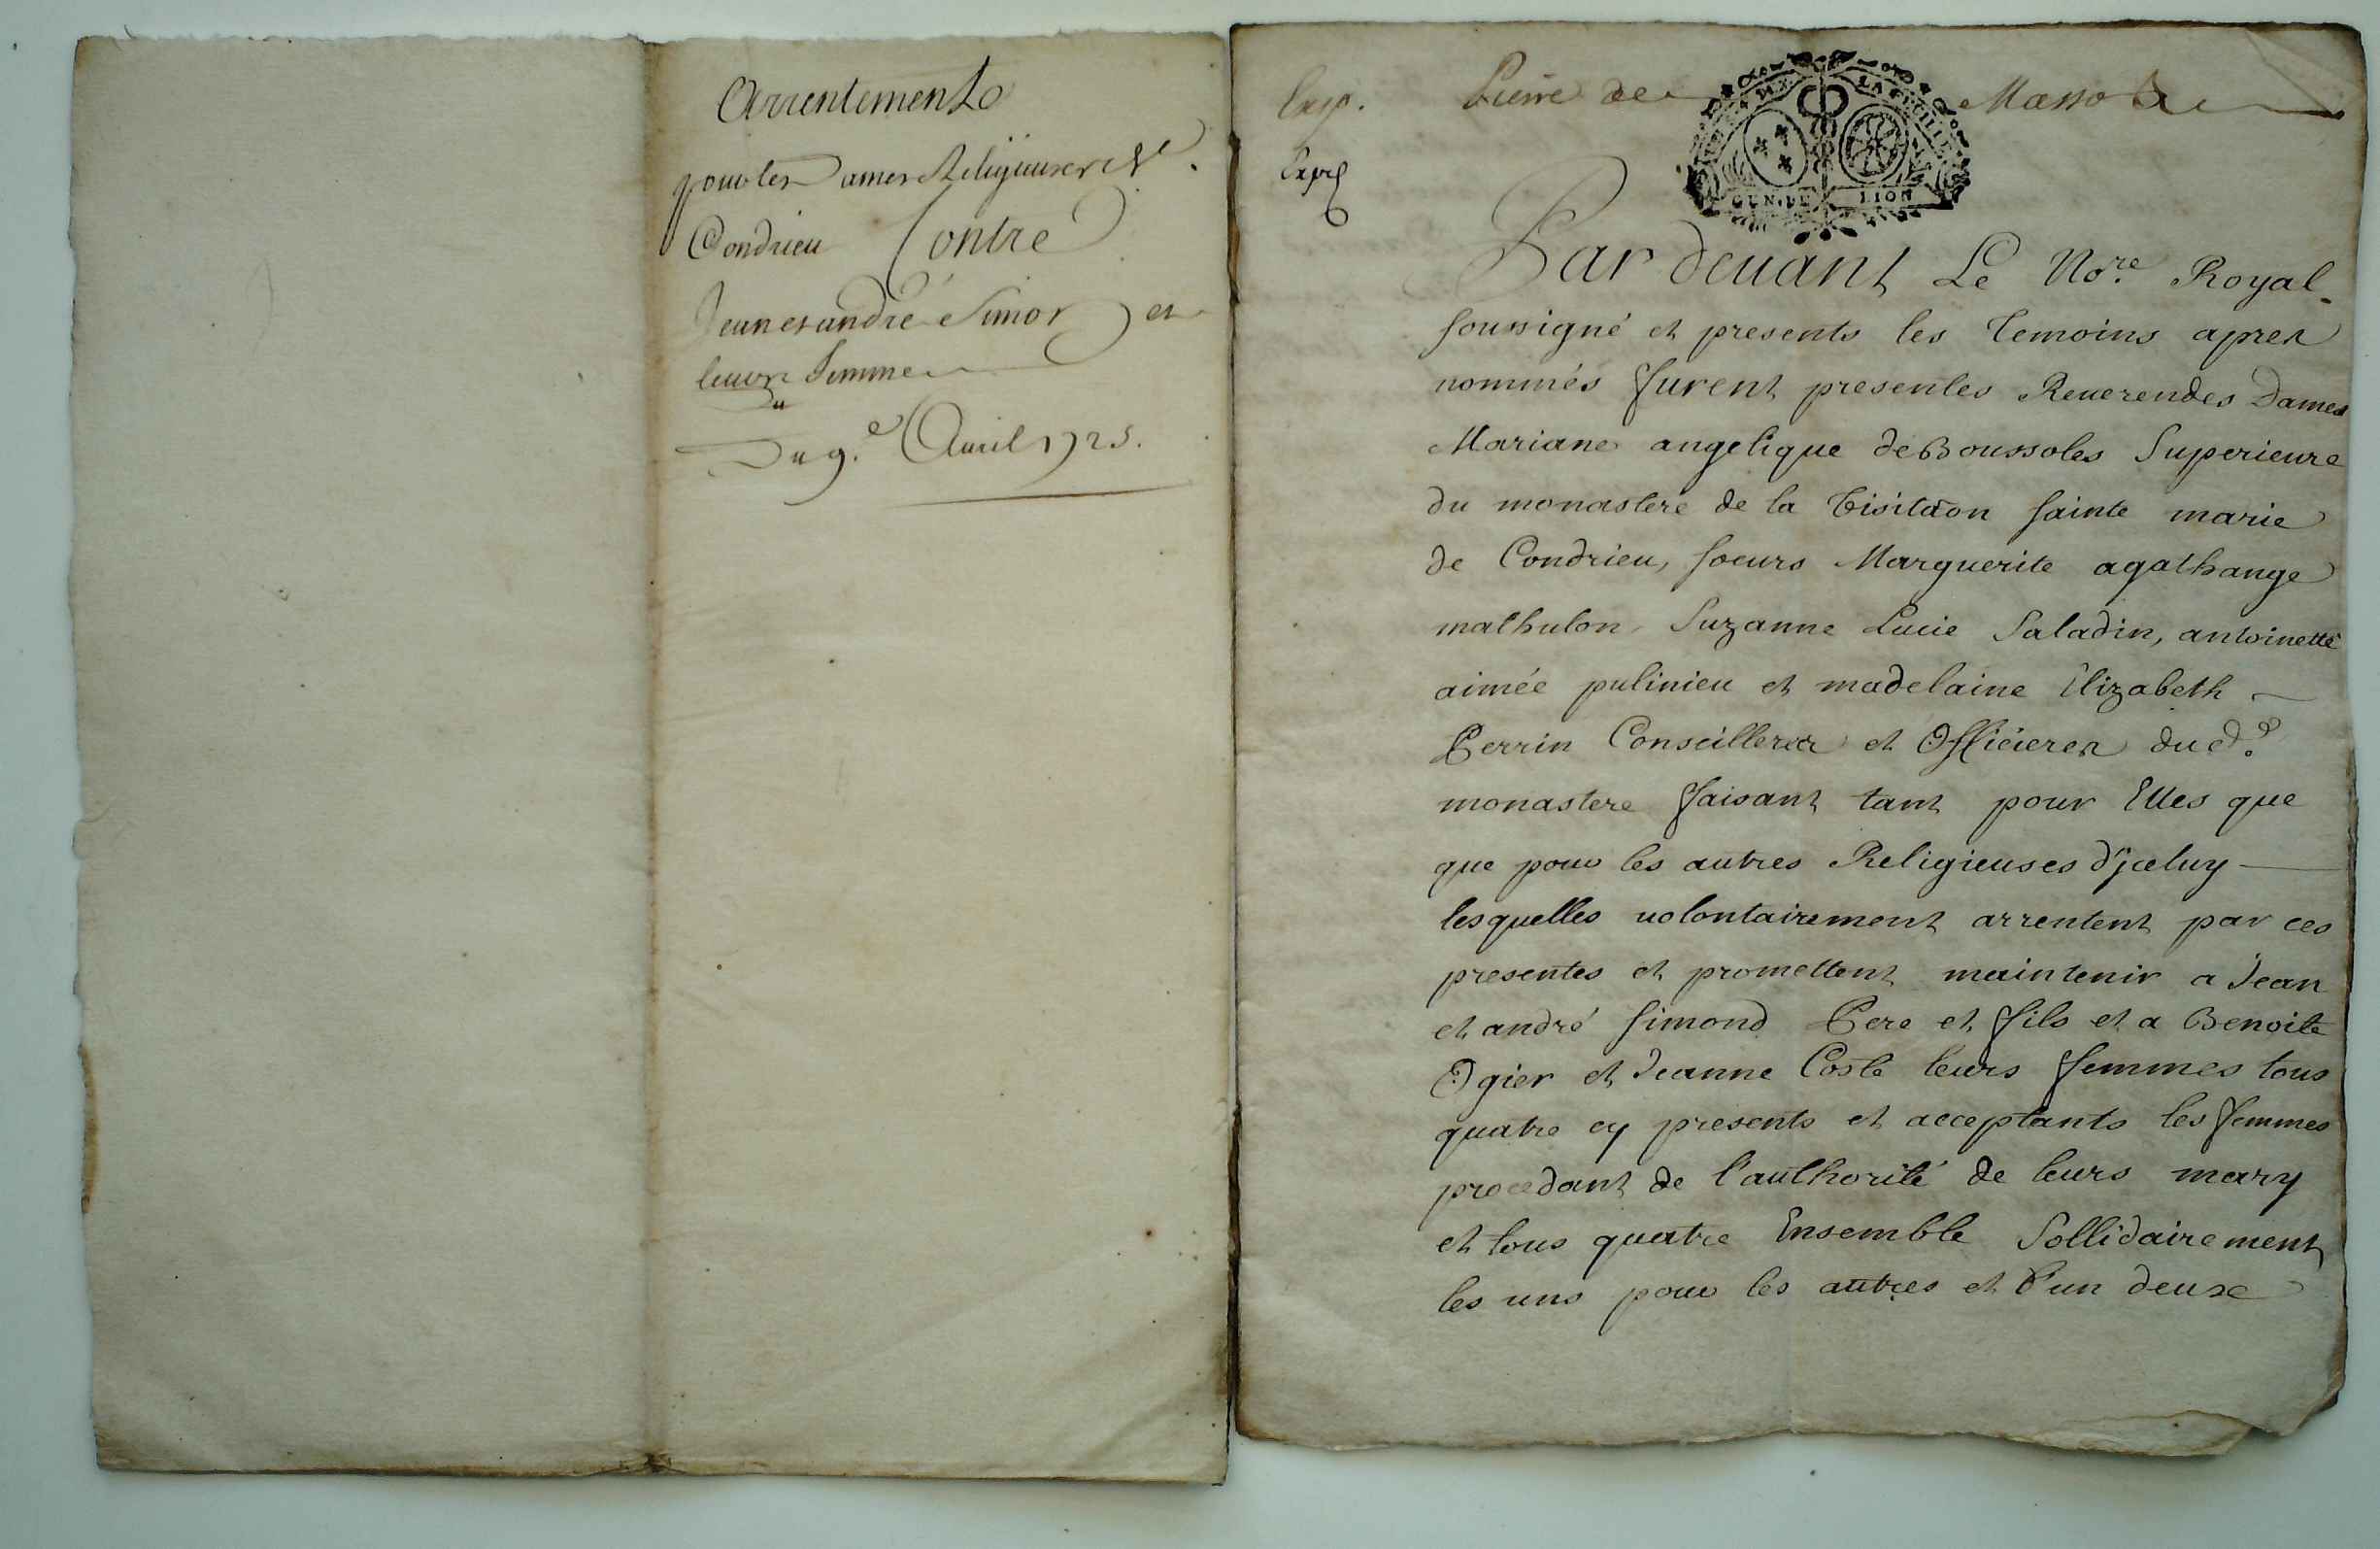 Arrentement
pour les Dames Religieuses de
Condrieu Contre
Jean et andré Simon et
leurs femme
Du 9.e Auril 1725.
Exp.
Pierre de Masso
Expé
GEN. DE LION
Par deuant Le No.re Royal
soussigné et presents les temoins apres
nommés furent presentes Reuerendes Dames
Mariane angelique de Boussoles Superieure
du monastere de la Visitãon sainte marie
de Condrieu, soeurs Marguerite agathange
mathulon, Suzanne Lucie Saladin, antoinette
aimée pulinieu et madelaine Elizabeth
Perrin Conseilleres et Officieres dud.
monastere faisant tant pour Elles que
que pour les autres Religieuses d'jceluy
lesquelles uolontairement arrentent par ces
presentes et promettent maintenir a Jean
et andré simond Pere et fils et a Benoite
Ogier et Jeanne Coste leurs femmes tous
quatre cy presents et acceptants les femmes
procedant de l'authorité de leurs mary
et tous quatre Ensemble Sollidairement
les uns pour les autres et l'un deux